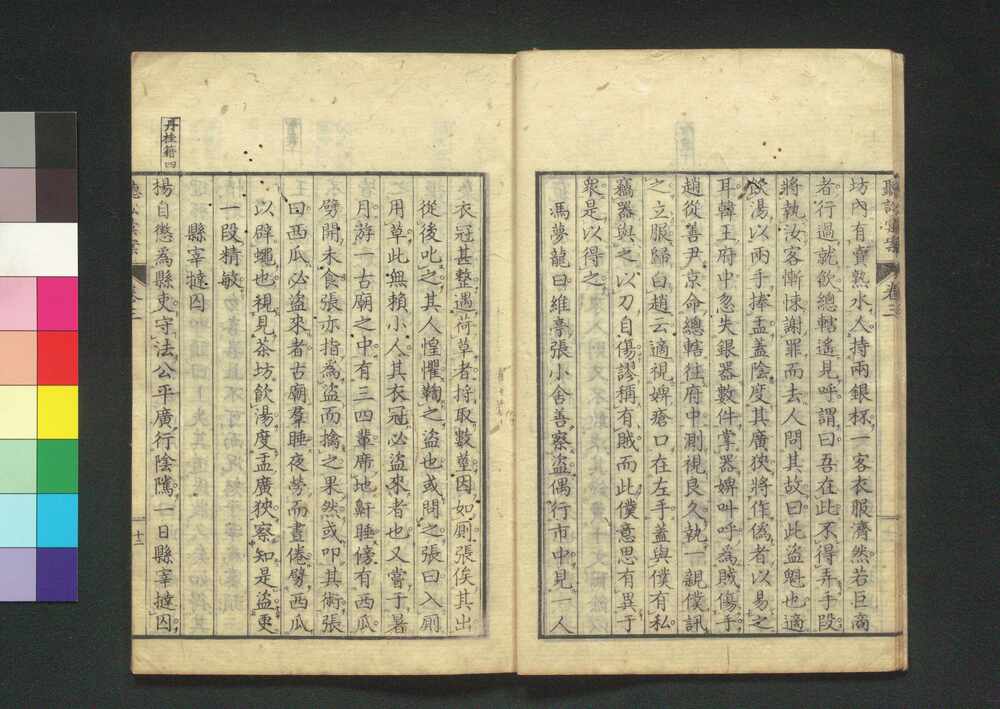 聽訟彙案 卷三
坊內有賣熟水人持兩銀杯一客衣服濟然若巨商
者行過就飲總轄遙見呼謂曰吾在此不得弄手段
將執汝客慚悚謝罪而去人問其故曰此盜魁也適
飲湯以兩手捧盂蓋陰度其廣狹將作偽者以易之
耳韓王府中忽失銀器數件掌器婢叫呼為賊傷手
趙從善尹京命總轄往府中測視良久執一親僕訊
之立服歸白趙云適視婢瘡口在左手蓋與僕有私
竊器與之以刀自傷謬稱有賊而此僕意思有異于
衆是以得之
馮夢龍曰維亭張小舍善察盜偶行市中見一人
衣冠甚整遇荷草者捋取數莖因如厠張俟其出
從後叱之其人惶懼鞫之盜也或問之張曰入厠
用草此無賴小人其衣冠必盜來者也又嘗于暑
月游一古廟之中有三四輩席地鼾睡傍有西瓜
劈開未食張亦指為盜而擒之果然或叩其術張
曰西瓜必盜來者古廟羣睡夜勞而晝倦劈西瓜
以辟蠅也視見茶坊飲湯度盂廣狹察知是盜更
一段精敏
縣宰撻囚
丹桂籍四
揚自懲爲縣吏守法公平廣行陰隲一日縣宰撻囚
十二